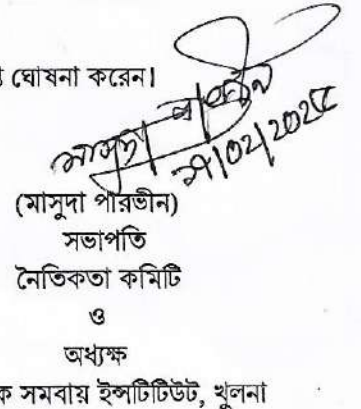 ঘোষনা করেন।
মাসুদা পারভীন
(মাসুদা পারভীন)
সভাপতি
নৈতিকতা কমিটি
ও
অধ্যক্ষ
ক সমবায় ইন্সটিটিউট, খুলনা